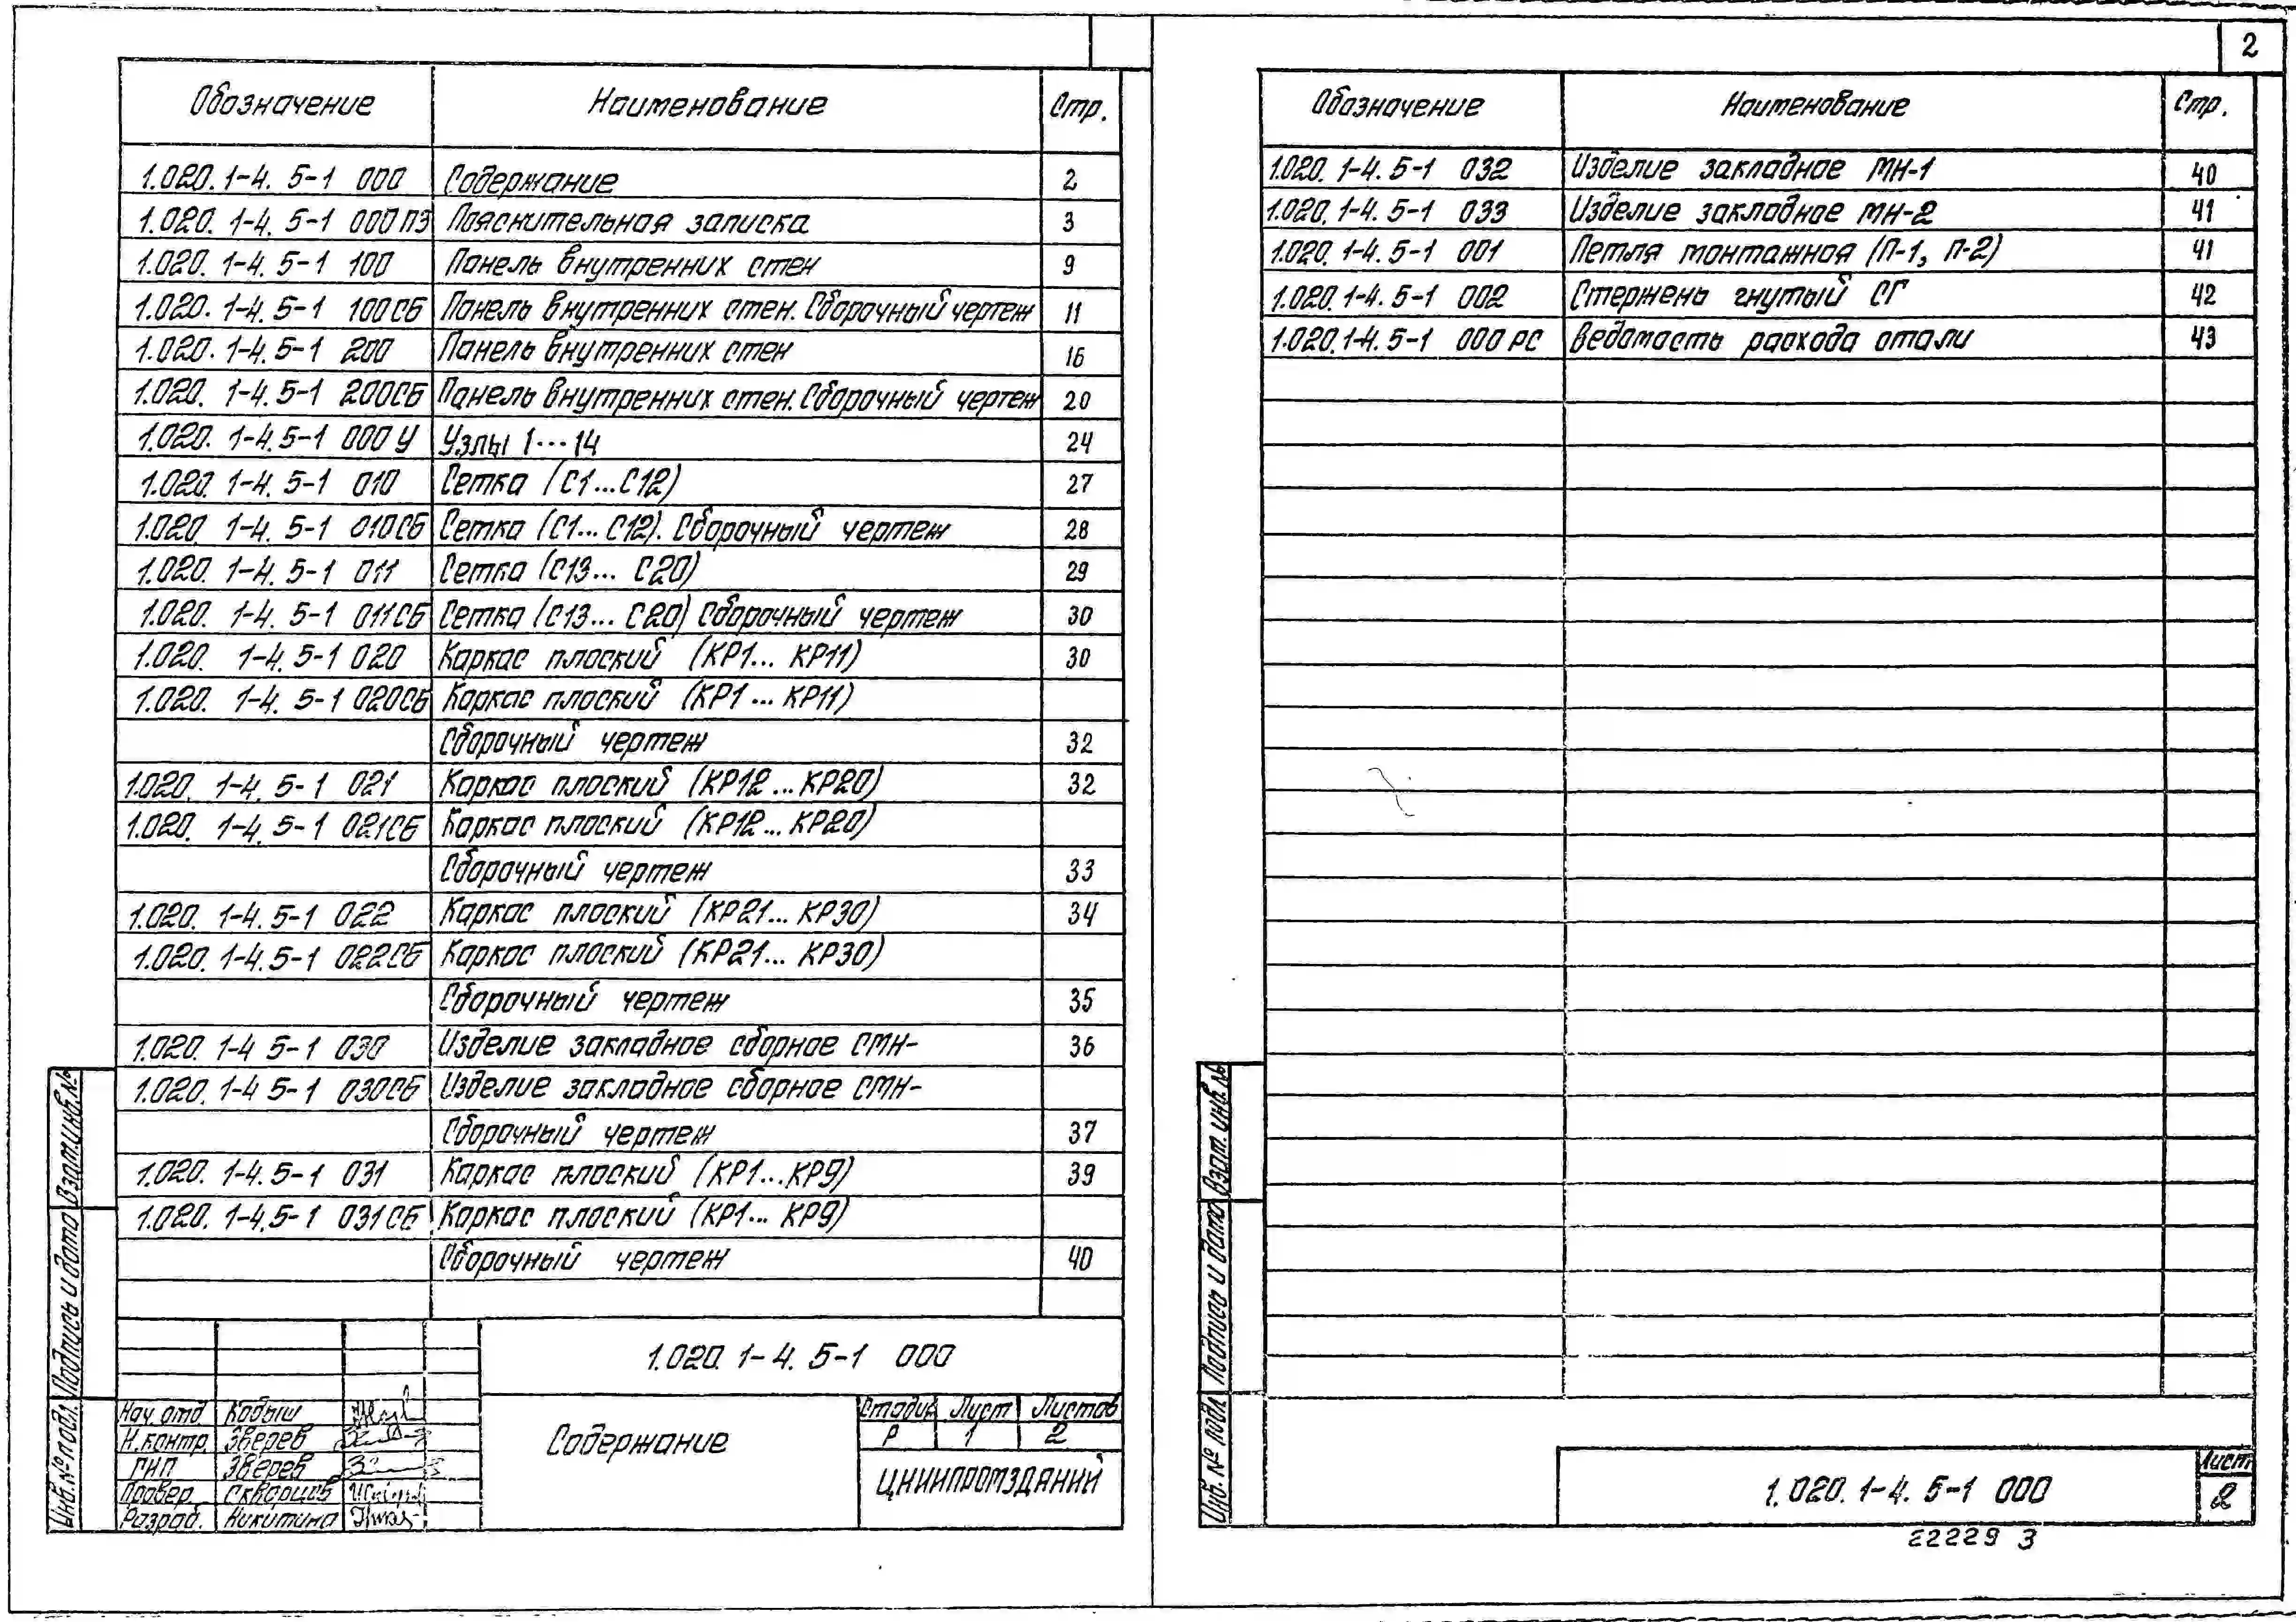 Обозначение Наименование Стр.
1.020.1-4. 5-1 000 Содержание 2
1.020. 1-4. 5-1 000ПЗ Пояснительная записка 3
1.020. 1-4. 5-1 100 Панель внутренних стен 9
1.020. 1-4. 5-1 100СБ Панель внутренних стен. Сборочный чертеж 11
1.020. 1-4. 5-1 200 Панель внутренних стен 16
1.020. 1-4. 5-1 200СБ Панель внутренних стен. Сборочный чертеж 20
1.020. 1-4. 5-1 000У Узлы 1...14 24
1.020. 1-4. 5-1 010 Сетка (С1...С12) 27
1.020 1-4. 5-1 010СБ Сетка (С1... С12). Сборочный чертеж 28
1.020. 1-4. 5-1 011 Сетка (С13... С20) 29
1.020. 1-4. 5-1 011СБ Сетка (С13... С20) Сборочный чертеж 30
1.020. 1-4. 5-1 020 Каркас плоский (КР1... КР11) 30
1.020. 1-4. 5-1 020СБ Каркас плоский (КР1... КР11)
Сборочный чертеж 32
1.020. 1-4. 5-1 021 Каркас плоский (КР12... КР20) 32
1.020. 1-4. 5-1 021СБ Каркас плоский (КР12... КР20)
Сборочный чертеж 33
1.020. 1-4. 5-1 022 Каркас плоский (КР21... КР30) 34
1.020. 1-4. 5-1 022СБ Каркас плоский (КР21... КР30)
Сборочный чертеж 35
1.020. 1-4 5-1 030 Изделие закладное сборное СМН- 36
1.020. 1-4 5-1 030СБ Изделие закладное сборное СМН-
Сборочный чертеж 37
1.020. 1-4. 5-1 031 Каркас плоский (КР1...КР9) 39
1.020. 1-4. 5-1 031СБ Каркас плоский (КР1... КР9)
Сборочный чертеж 40
Взам.инв.№
Подпись и дата
Инв.№ подл.
1.020. 1-4. 5-1 000
Нач.отд Кодыш
Н.контр. Зверев
ГИП Зверев
Провер. Скворцов
Разраб. Никитина
Содержание
Стадия Лист Листов
Р 1 2
ЦНИИПРОМЗДАНИЙ
2
Обозначение Наименование Стр.
1.020. 1-4. 5-1 032 Изделие закладное МН-1 40
1.020. 1-4. 5-1 033 Изделие закладное МН-2 41
1.020. 1-4. 5-1 001 Петля монтажная (П-1, П-2) 41
1.020. 1-4. 5-1 002 Стержень гнутый СГ 42
1.020. 1-4. 5-1 000 РС Ведомость расхода стали 43
Взам. инв.№
Подпись и дата
Инв. № подл
1. 020. 1-4. 5-1 000
Лист
2
22229 3